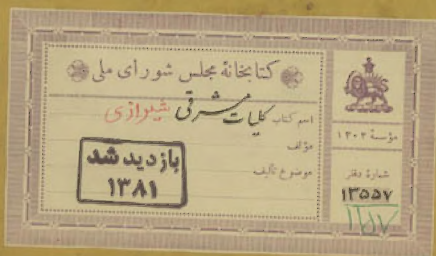 کتابخانهٔ مجلس شورای ملی
اسم کتاب کلیات مشرقی شیرازی
مؤلف
موضوع تألیف
بازدید شد
۱۳۸۱
مؤسسهٔ ۱۳۰۲
شمارهٔ دفتر
۱۳۵۵۷